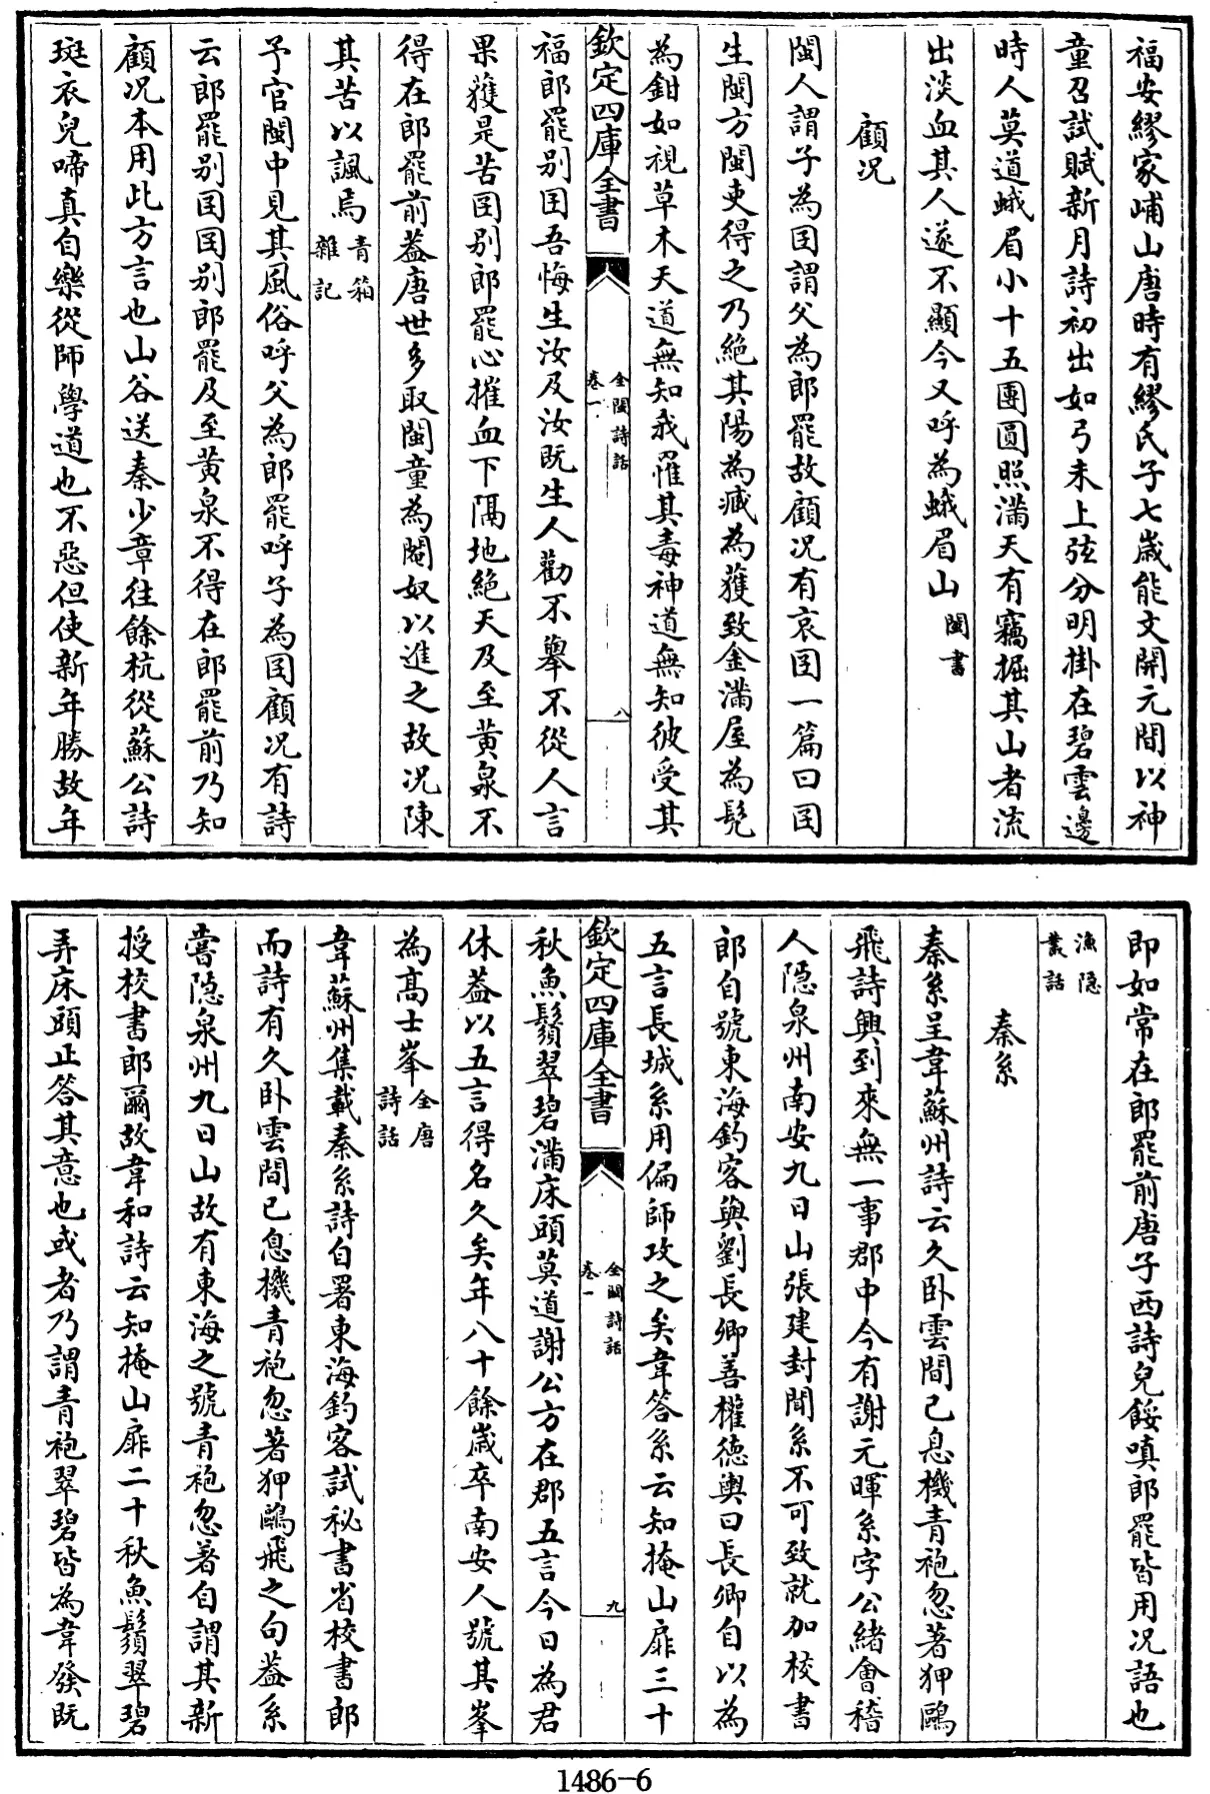 福安繆家峬山唐時有繆氏子七歲能文開元間以神
童召試賦新月詩初出如弓未上弦分明掛在碧雲邊
時人莫道蛾眉小十五團圓照滿天有竊掘其山者流
出淡血其人遂不顯今又呼為蛾眉山閩書
顧况
閩人謂子為囝謂父為郎罷故顧况有哀囝一篇曰囝
生閩方閩吏得之乃絶其陽為臧為獲致金滿屋為髡
為鉗如視草木天道無知我罹其毒神道無知彼受其
欽定四庫全書
全閩詩話
卷一
八
福郎罷别囝吾悔生汝及汝既生人勸不舉不從人言
果獲是苦囝别郎罷心摧血下隔地絶天及至黄泉不
得在郎罷前葢唐世多取閩童為閹奴以進之故况陳
其苦以諷焉青箱
雜記
予官閩中見其風俗呼父為郎罷呼子為囝顧况有詩
云郎罷别囝囝别郎罷及至黄泉不得在郎罷前乃知
顧况本用此方言也山谷送秦少章往餘杭從蘇公詩
斑衣兒啼真自樂從師學道也不惡但使新年勝故年
即如常在郎罷前唐子西詩兒餒嗔郎罷皆用况語也
漁隱
叢話
秦系
秦系呈韋蘇州詩云久卧雲間已息機青袍忽著狎鷗
飛詩興到來無一事郡中今有謝元暉系字公緒會稽
人隱泉州南安九日山張建封聞系不可致就加校書
郎自號東海釣客與劉長卿善權德輿曰長卿自以為
五言長城系用偏師攻之矣韋答系云知掩山扉三十
欽定四庫全書
全閩詩話
卷一
九
秋魚鬚翠碧滿床頭莫道謝公方在郡五言今日為君
休葢以五言得名久矣年八十餘歲卒南安人號其峯
為高士峯全唐
詩話
韋蘇州集載秦系詩自署東海釣客試秘書省校書郎
而詩有久卧雲間已息機青袍忽著狎鷗飛之句葢系
嘗隱泉州九日山故有東海之號青袍忽著自謂其新
授校書郎爾故韋和詩云知掩山扉二十秋魚鬚翠碧
弄床頭正答其意也或者乃謂青袍翠碧皆為韋發既
1486-6